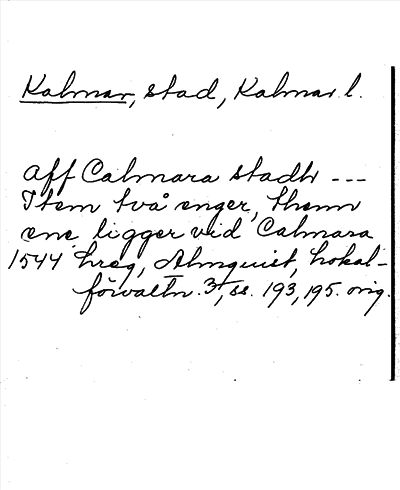 Kalmar, stad, Kalmar l.
Aff Calmara stadh ---
Item två enger, thenn
ene ligger vid Calmara
1544 hreg, Almquist, Lokal-
förvaltn. 3, ss. 193, 195. orig.